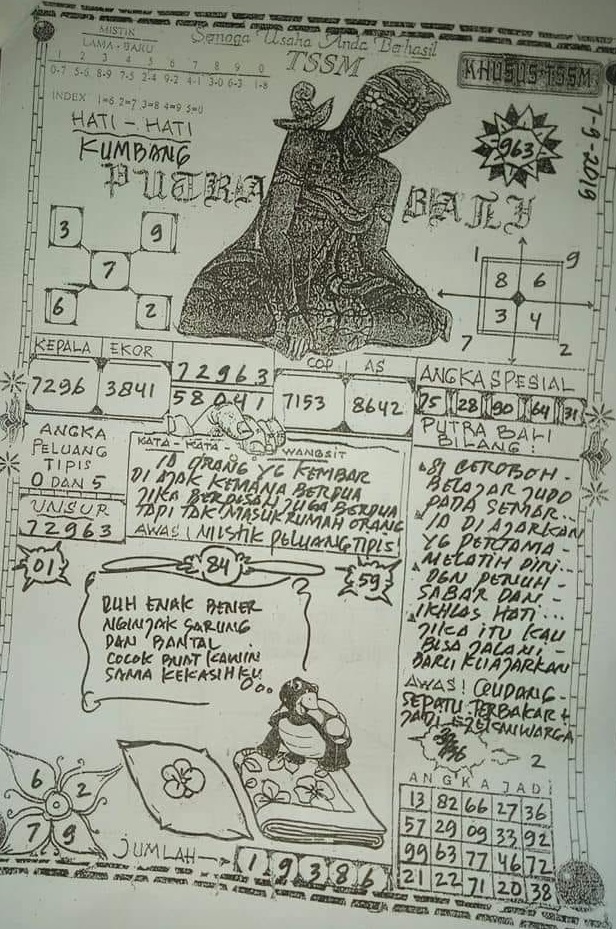 MISTIK
LAMA - BARU
1 2 3 4 5 6 7 8 9 0
0-7 5-6 8-9 7-5 2-4 9-2 4-1 3-0 6-3 1-8
INDEX 1=6 2=7 3=8 4=9 5=0
Semoga Usaha Anda Berhasil
TSSM
KHUSUS·TSSM
HATI - HATI
KUMBANG
963
7-9-2019
PUTRA BALI
3 9
7
6 2
1 9
8 6
3 4
7 2
KEPALA EKOR
7296 3841
72963
58041
COP AS
7153 8642
ANGKA SPESIAL
75 28 90 64 31
ANGKA
PELUANG
TIPIS
0 DAN 5
UNSUR
72963
KATA - KATA - WANGSIT
ORANG YG KEMBAR
DI AJAK KEMANA BERDUA
JIKA BERDESAU JUGA BERDUA
TAPI TAK MASUK RUMAH ORANG
AWAS! MISTIK PELUANG TIPIS!
PUTRA BALI
BILANG:
SI CEROBOH -
BELAJAR JUDO
PADA SEMAR...
IA DI AJARKAN
YG PERTAMA -
MELATIH DIRI -
DGN PENUH -
SABAR DAN -
IKHLAS HATI...
JIKA ITU KAU
BISA JALANI -
BARU KUAJARKAN
AWAS!
SEPATU TERBAKAR +
JADI
01
84
59
DUH ENAK BENER
NGINJAK SARUNG
DAN BANTAL
COCOK BUAT KAWIN
SAMA KEKASIHKU
2
6 2
7 9
JUMLAH
1 9 3 8 6
ANGKA JADI
13 82 66 27 36
57 29 09 33 92
99 63 77 46 72
21 22 71 20 38